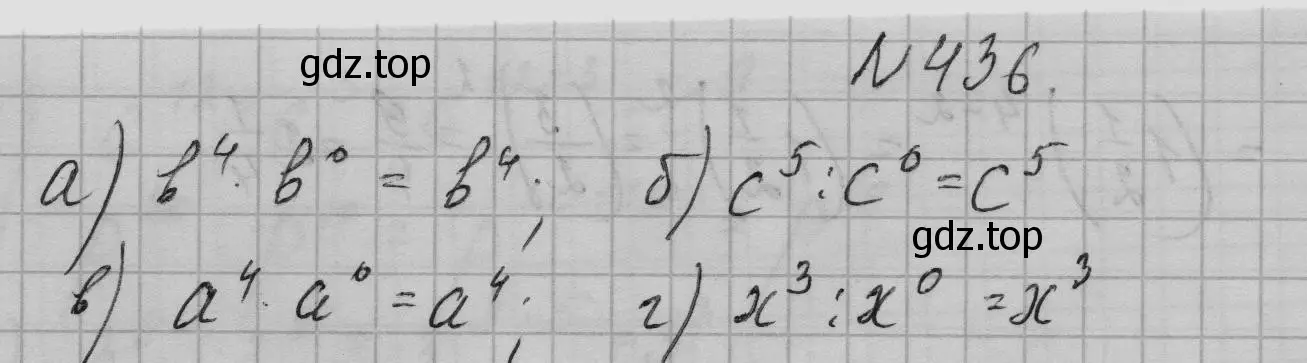 gdz.top
N 436.
а) b⁴ · b⁰ = b⁴; б) c⁵ : c⁰ = c⁵
gdz.top
в) a⁴ · a⁰ = a⁴; г) x³ : x⁰ = x³